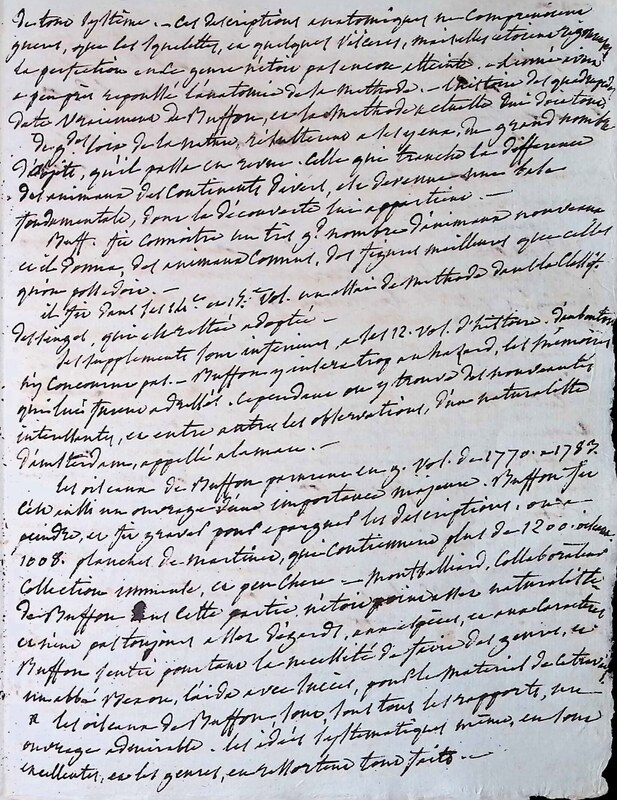 de tout système. — Ces descriptions anatomiques ne comprennent
gueres, que les squelettes, et quelques viscères, mais elles etoient
la perfection en ce genre n'étoit pas encore atteinte. —
a peu près repoussé l'anatomie de la methode. — L'histoire des quadrupedes
date vraiment de Buffon, et la methode actuelle lui doit tout
de gdes loix de la nature, resulterent a ses yeux, du grand nombre
d'objets, qu'il passa en revue. Celle qui tranche la difference
des animaux des Continents divers, est devenue une base
fondamentale, dont la découverte lui appartient. —
Buff. fit connoitre un très gd nombre d'animaux nouveaux
et il donna, des animaux connus, des figures meilleures que celles
qu'on possedoit. —
il fit dans les 14.e et 15.e vol. un essai de methode dans la Classifn
des singes, qui est restée adoptée. —
les supplements sont inferieurs, a ses 12. vol. d'histoire. d'aubenton
n'y concourut pas. — Buffon y insera trop au hazard, les mémoires
qui lui furent adressés. Cependant on y trouve des nouveautés
interessantes, et entre autres les observations, d'un naturaliste
d'amsterdam, appellé alaman. —
les oiseaux de Buffon parurent en 9. vol. de 1770. a 1783.
C'est aussi un ouvrage d'une importance majeure. Buffon fit
peindre, et fit graver pour epargner les descriptions,
1008. planches de martinet, qui contiennent plus de 1200. oiseaux
Collection immense, et peu chere — Montbelliard, Collaborateur
de Buffon dans cette partie, n'étoit point assez naturaliste
et n'eut pas toujours assez d'égards, aux espèces, et aux caractères
Buffon sentit pourtant la necessité de faire des genres, et
un abbé Bexon, l'aida avec succès, pour le materiel de ce travail
les oiseaux de Buffon sont, sous tous les rapports, un
ouvrage admirable. les idées systematiques même, en sont
excellentes, et les genres, en ressortent tout faits. —